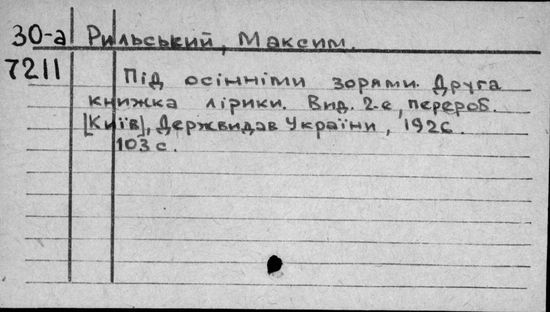 30-а Рильський, Максим.
7211
Під осінніми зорями. Друга
книжка лірики. Вид. 2-е, перероб.
[Київ], Держвидав України, 1926.
103 с.